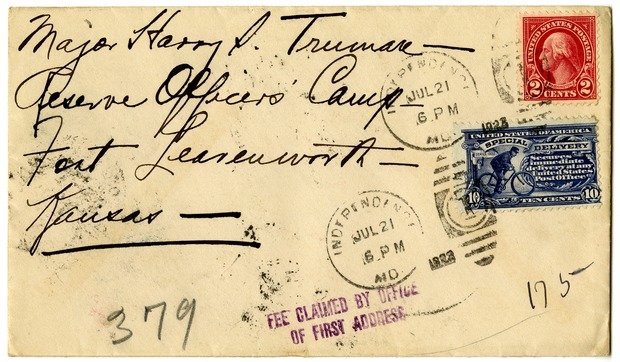 Major Harry S. Truman —
Reserve Officers' Camp —
Fort Leavenworth —
Kansas —
INDEPENDENCE
JUL 21
6 PM
MO.
1923
UNITED STATES POSTAGE
2 CENTS 2
UNITED STATES OF AMERICA
SPECIAL DELIVERY
Secures
immediate
delivery at any
United States
Post Office
10 TEN CENTS 10
INDEPENDENCE
JUL 21
6 PM
MO
1923
FEE CLAIMED BY OFFICE
OF FIRST ADDRESS
379
175